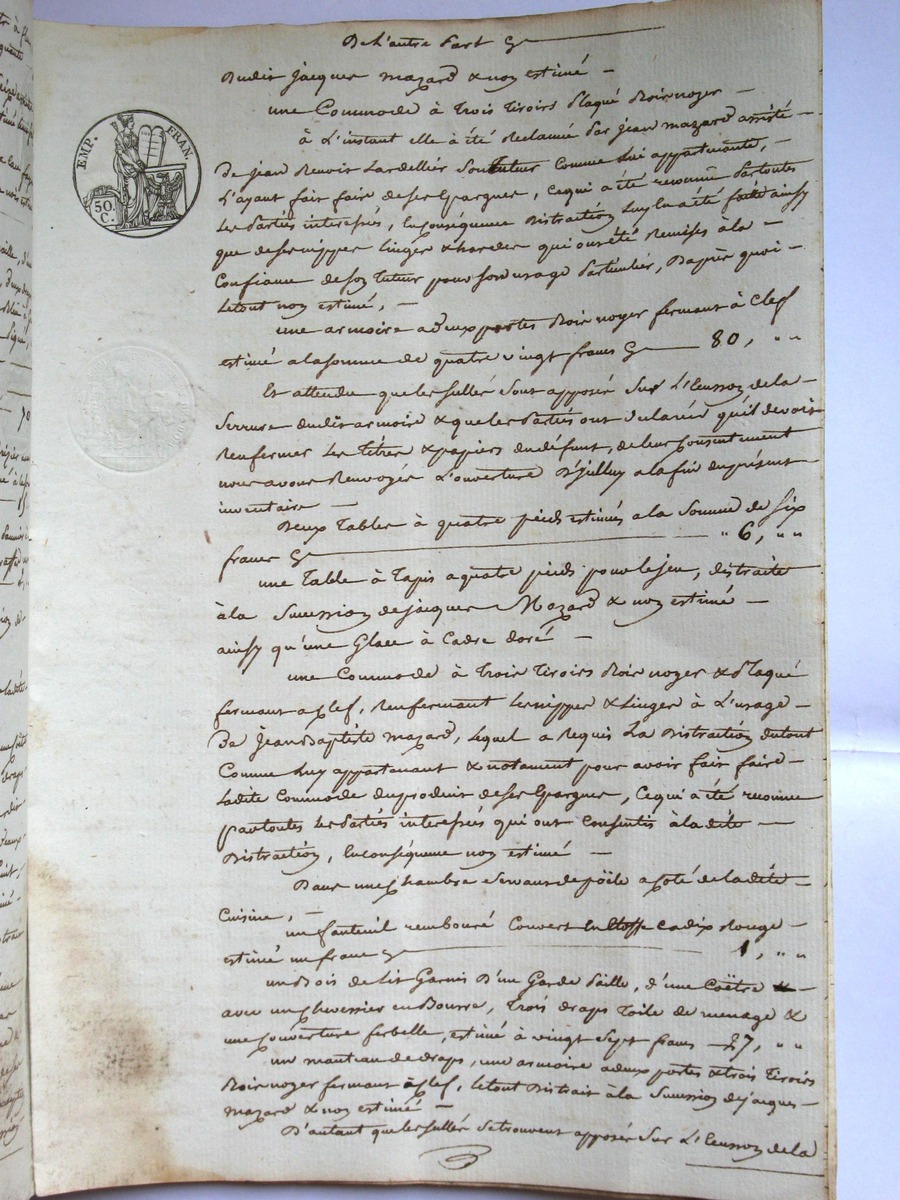 De l'autre part
Dudit jacques mazard & non estimé —
une Commode à trois tiroirs plaqué Bois noyer —
à L'instant elle à été Reclamée par jean mazard assisté —
De jean Benoit Lardellier Son tuteur Comme lui appartenante, —
L'ayant fait faire de ses Epargnes, Ce qui a été reconnu par toutes
Les parties interessés, En conséquence Distraction luy la a été faitte ainsy
que de ses nippes linges & hardes qui ont été Remises à la —
Confiance de son tuteur pour son usage particulier, D'après quoi —
le tout non estimé, —
une armoire a deux portes Bois noyer fermant à Clef
estimé a la somme de quatre vingt francs — 80, " "
Et attendu que les scellés Sont apposés Sur L'Ecusson de la —
Serrure dudit armoire & que les parties ont declarés qu'il devoit
Renfermer les titres & papiers du défunt, de leur Consentement
nous avons Renvoyés L'ouverture D'jcelluy a la fin du présent
inventaire —
Deux Tables à quatre pieds estimés a la Somme de Six
francs — " 6, " "
une Table à Tapis a quatre pieds pour le jeu, distraite
à la Succession de jacques Mazard & non estimé —
ainsy qu'une Glace à Cadre doré —
une Commode à trois tiroirs Bois noyer & Plaqué
fermant a Clef, Renfermant les nippes & Linges à L'usage —
De Jean Baptiste mazard, lequel a Requis La Distraction du tout
Comme luy appartenant & notament pour avoir fait faire —
Ladite Commode du produit de ses Epargnes, Ce qui a été reconnu
par toutes les parties interessés qui ont Consentis à la dite —
Distraction, En conséquence non estimé —
Dans une Chambre Servant de poële a Coté de la dite —
Cuisine, —
un fauteuil rembouré Couvert en Etoffe cadix Rouge —
estimé un franc — 1, " "
un Bois de Lit Garnis D'un Garde paille, d'une Coëtre —
avec un Chevessier en Bourre, trois draps toile de menage &
une Couverture ferbelle, estimé à vingt Sept francs — 27, " "
un manteau de draps, une armoire a deux portes & trois tiroirs
Bois noyer fermant à Clef, le tout Distrait à la Succession de jacques —
mazard & non estimé —
D'autant que les scellés se trouvent apposés Sur L'Ecusson de la
EMP. FRAN.
50 C.